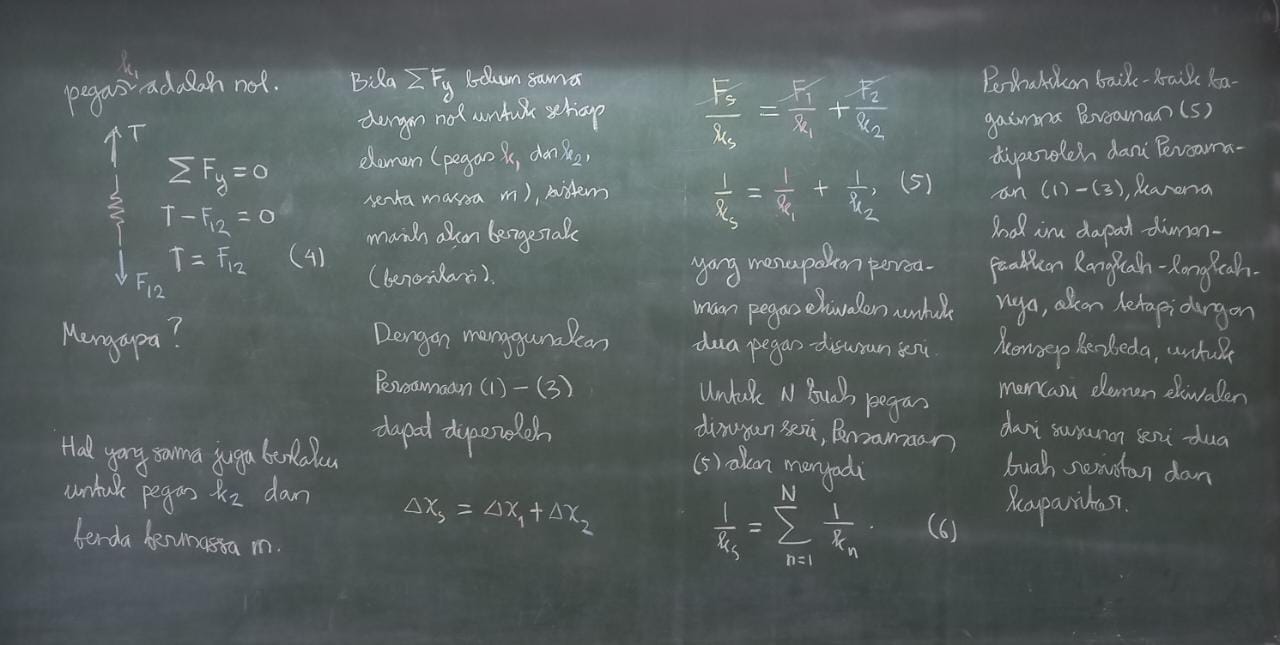 pegas k₁ adalah nol.
T
ΣF_y = 0
T - F₁₂ = 0
T = F₁₂ (4)
F₁₂
Mengapa?
Hal yang sama juga berlaku
untuk pegas k₂ dan
benda bermassa m.
Bila ΣF_y belum sama
dengan nol untuk setiap
elemen (pegas k₁ dan k₂,
serta massa m), sistem
masih akan bergerak
(berosilasi).
Dengan menggunakan
Persamaan (1) – (3)
dapat diperoleh
Δx_s = Δx₁ + Δx₂
F_s/k_s = F₁/k₁ + F₂/k₂
1/k_s = 1/k₁ + 1/k₂, (5)
yang merupakan persa-
maan pegas ekivalen untuk
dua pegas disusun seri.
Untuk N buah pegas
disusun seri, Persamaan
(5) akan menjadi
1/k_s = Σ_{n=1}^{N} 1/k_n. (6)
Perhatikan baik-baik ba-
gaimana Persamaan (5)
diperoleh dari Persama-
an (1) – (3), karena
hal ini dapat diman-
faatkan langkah-langkah-
nya, akan tetapi dengan
konsep berbeda, untuk
mencari elemen ekivalen
dari susunan seri dua
buah resistor dan
kapasitor.